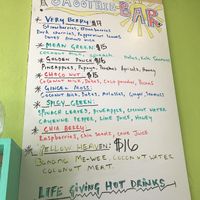 SMOOTHIE
BAR
* VERY BERRY: $17
Strawberries, Blueberries
Dark cherries, Peppermint leaves
* MEAN GREEN: $15
Coconut water, Dates, Kale
* GOLDEN DUCK $16
Pineapples, Papaya, Peaches, Apricots,
* CHOCO NUT: $15
Coconut meat, Dates, Coco powder,
* GINGER MOSS:
Coconut meat, Dates, Molasses, Ginger, Seamoss
* SPICY GREEN:
SPINACH LEAVES, PINEAPPLE, COCONUT WATER
CAYENNE PEPPER, LIME JUICE, HONEY
* CHIA BERRY:
Raspberries, chia seeds, cane juice
* YELLOW HEAVEN: $16
COCONUT WATER
COCONUT MEAT.
LIFE GIVING HOT DRINKS